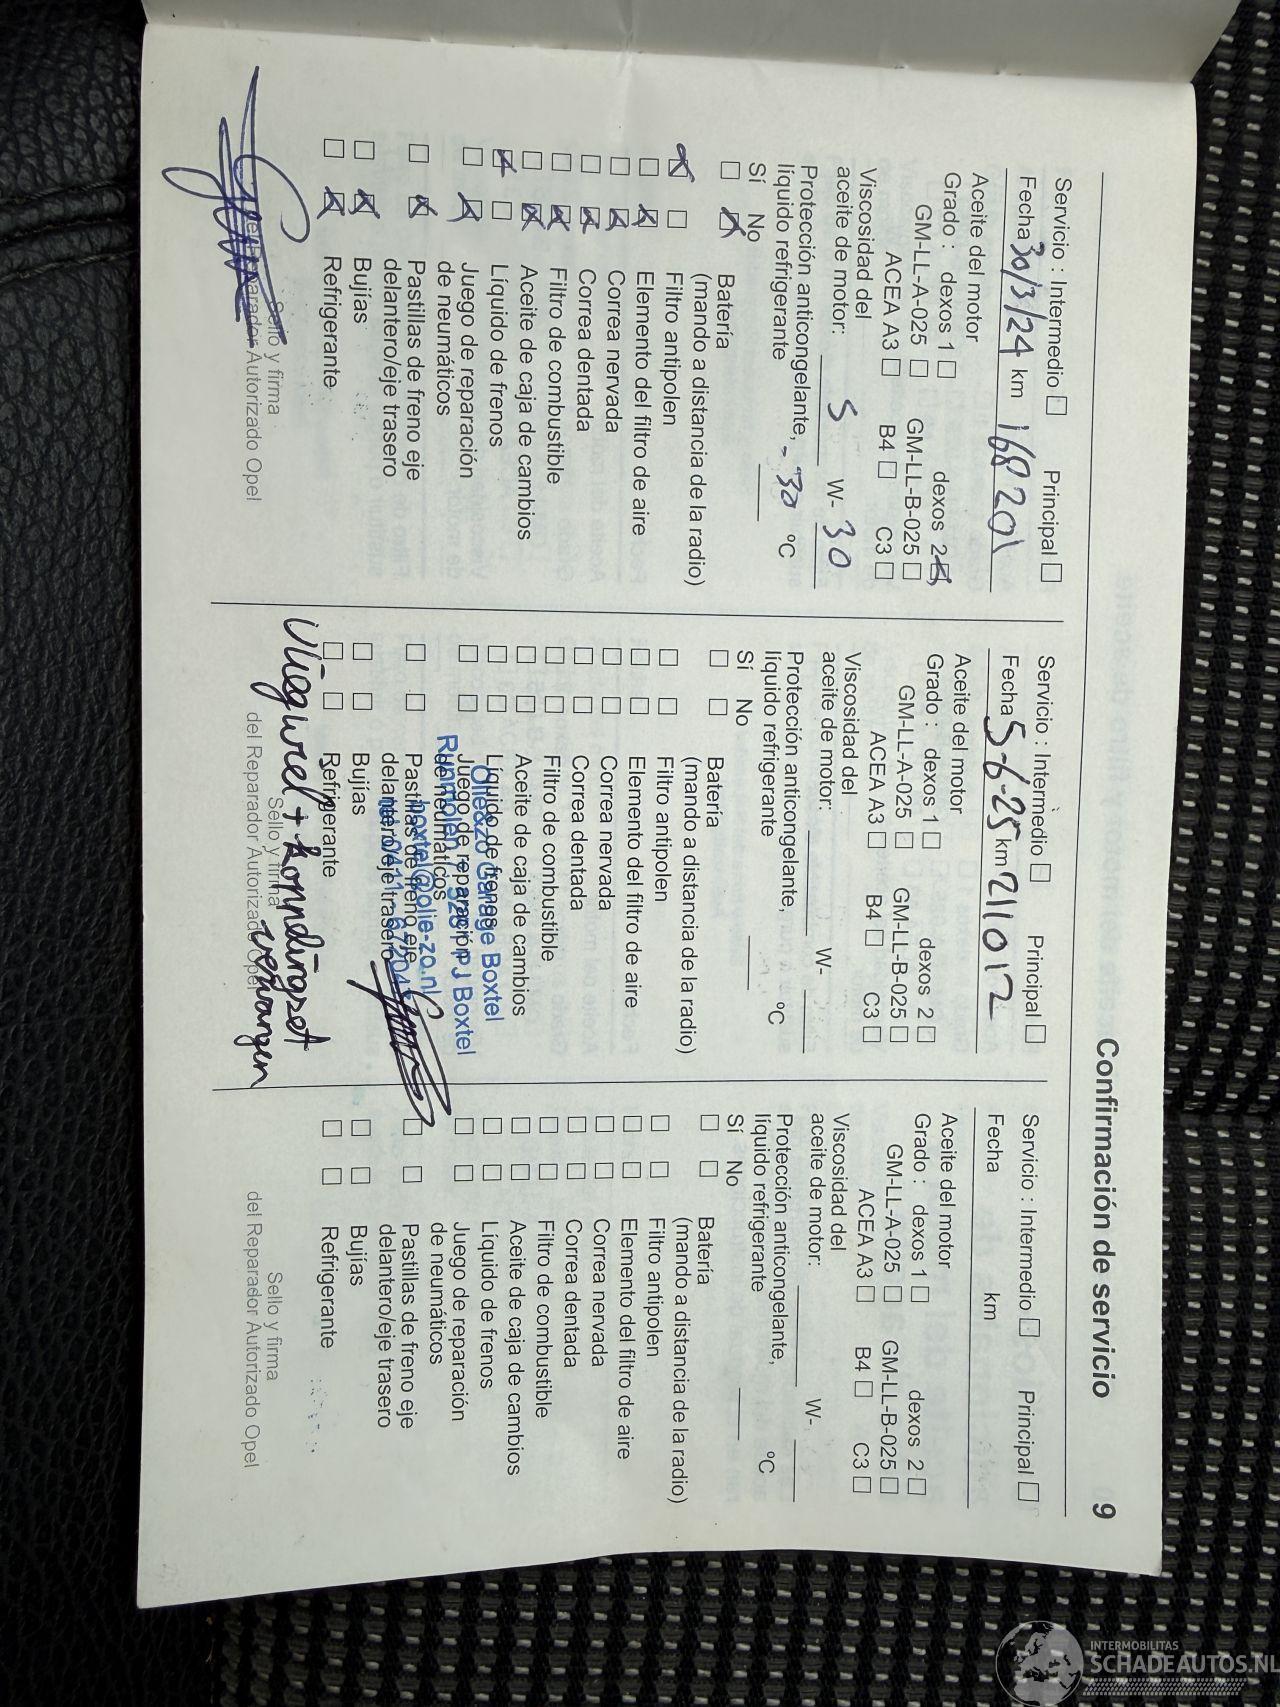 Confirmación de servicio 9
Servicio : Intermedio □ Principal □
Fecha 30/3/24 km 168201
Aceite del motor
Grado : dexos 1 □ dexos 2 ☒
GM-LL-A-025 □ GM-LL-B-025 □
ACEA A3 □ B4 □ C3 □
Viscosidad del
aceite de motor: 5 W- 30
Protección anticongelante,
líquido refrigerante -30 °C
Sí No
□ ☒ Batería
(mando a distancia de la radio)
☒ □ Filtro antipolen
□ ☒ Elemento del filtro de aire
□ ☒ Correa nervada
□ ☒ Correa dentada
□ ☒ Filtro de combustible
□ ☒ Aceite de caja de cambios
☒ □ Líquido de frenos
□ ☒ Juego de reparación
de neumáticos
□ ☒ Pastillas de freno eje
delantero/eje trasero
□ ☒ Bujías
□ ☒ Refrigerante
Sello y firma
del Reparador Autorizado Opel
Servicio : Intermedio □ Principal □
Fecha 5-6-25 km 211012
Aceite del motor
Grado : dexos 1 □ dexos 2 □
GM-LL-A-025 □ GM-LL-B-025 □
ACEA A3 □ B4 □ C3 □
Viscosidad del
aceite de motor: W-
Protección anticongelante,
líquido refrigerante °C
Sí No
□ □ Batería
(mando a distancia de la radio)
□ □ Filtro antipolen
□ □ Elemento del filtro de aire
□ □ Correa nervada
□ □ Correa dentada
□ □ Filtro de combustible
□ □ Aceite de caja de cambios
□ □ Líquido de frenos
□ □ Juego de reparación
de neumáticos
□ □ Pastillas de freno eje
delantero/eje trasero
□ □ Bujías
□ □ Refrigerante
Olie&zo Garage Boxtel
PJ Boxtel
boxtel@olie-zo.nl
Vliegwiel + koppelingset
vervangen
Sello y firma
del Reparador Autorizado Opel
Servicio : Intermedio □ Principal □
Fecha km
Aceite del motor
Grado : dexos 1 □ dexos 2 □
GM-LL-A-025 □ GM-LL-B-025 □
ACEA A3 □ B4 □ C3 □
Viscosidad del
aceite de motor: W-
Protección anticongelante,
líquido refrigerante °C
Sí No
□ □ Batería
(mando a distancia de la radio)
□ □ Filtro antipolen
□ □ Elemento del filtro de aire
□ □ Correa nervada
□ □ Correa dentada
□ □ Filtro de combustible
□ □ Aceite de caja de cambios
□ □ Líquido de frenos
□ □ Juego de reparación
de neumáticos
□ □ Pastillas de freno eje
delantero/eje trasero
□ □ Bujías
□ □ Refrigerante
Sello y firma
del Reparador Autorizado Opel
INTERMOBILITAS
SCHADEAUTOS.NL